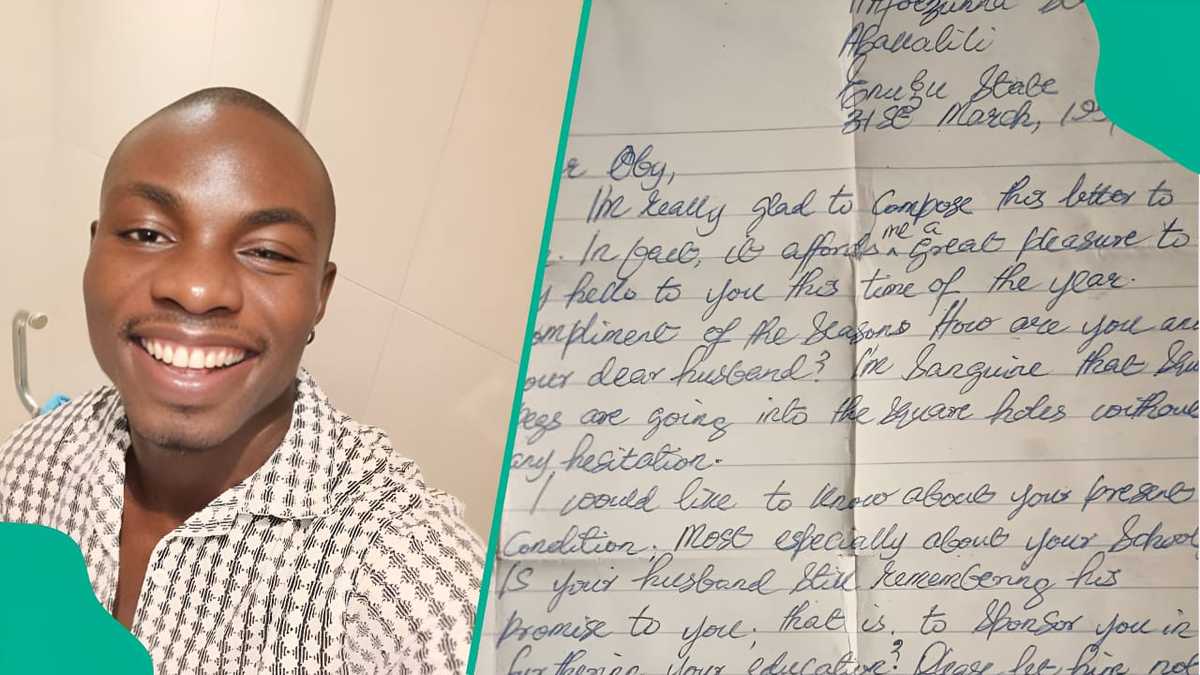 Abakaliki
Enugu State
31st March, 199
Oby,
I'm really glad to compose this letter to
. In fact, it affords me a great pleasure to
hello to you this time of the year.
ompliment of the seasons How are you an
our dear husband? I'm Sanguine that Squ
pegs are going into the square holes withou
any hesitation.
I would like to know about your present
Condition. Most especially about your School
Is your husband still remembering his
promise to you, that is, to sponsor you in
furthering your education? Please let him not